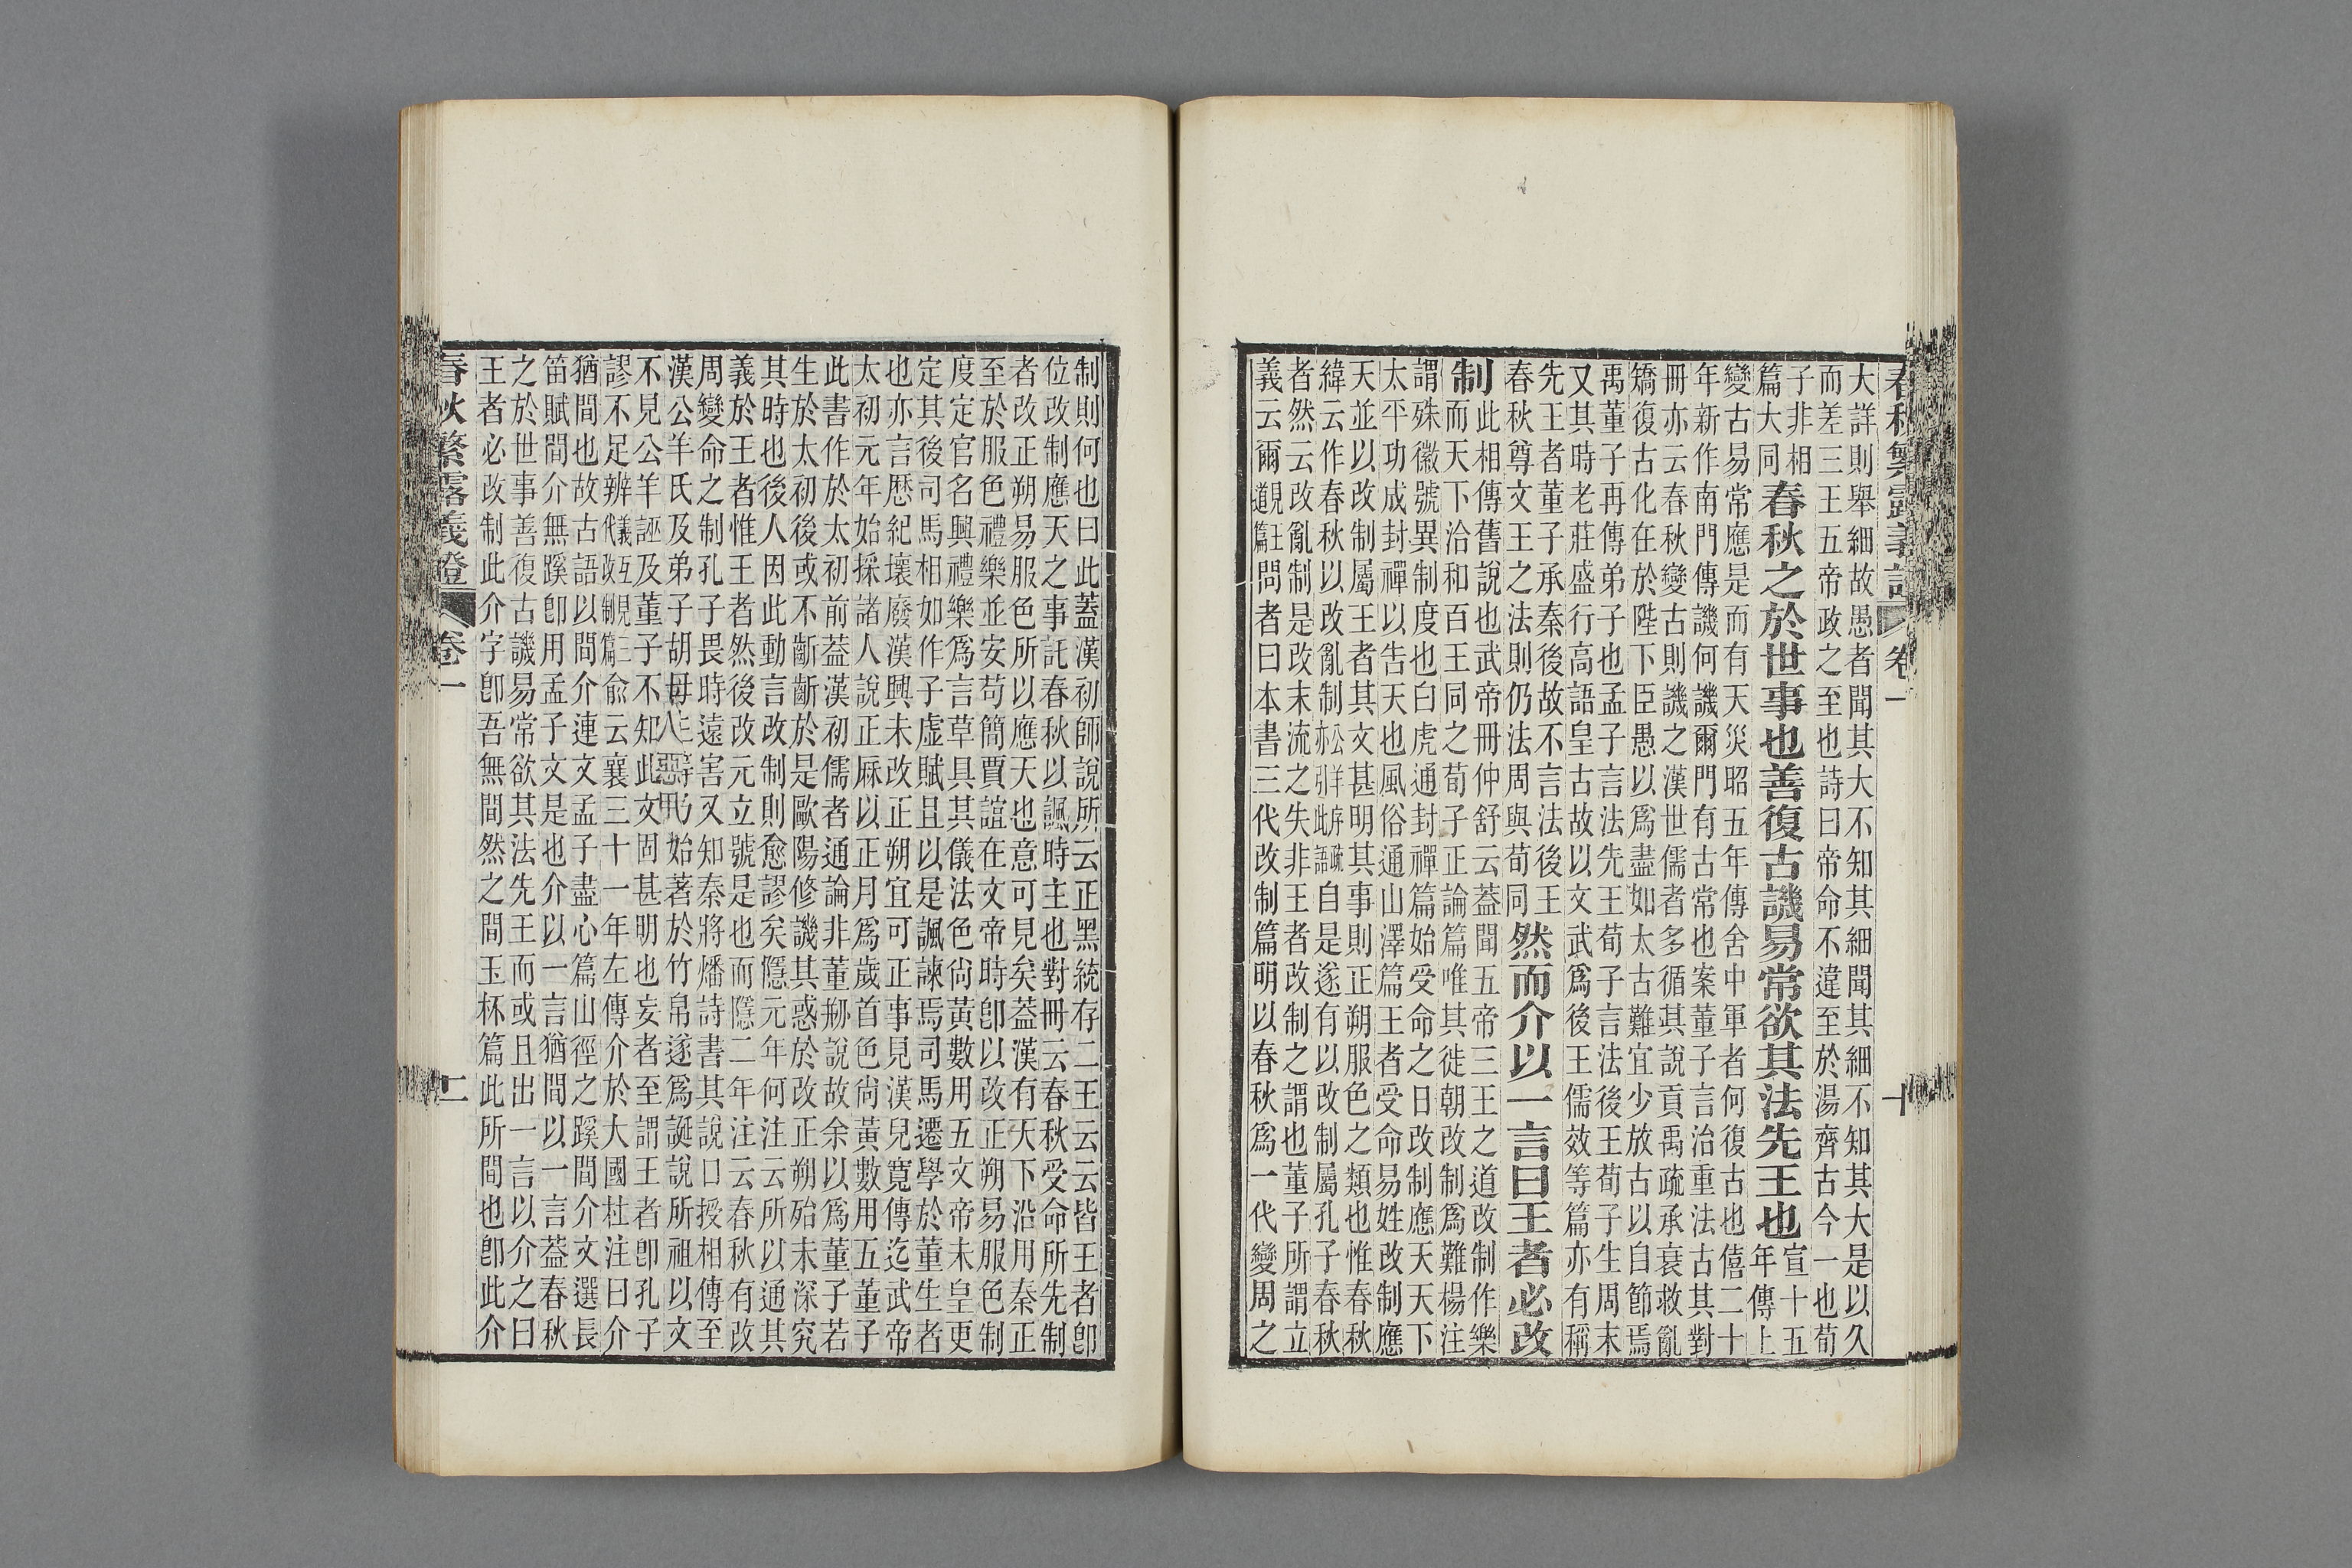 春秋繁露義證　卷一　十
大詳則舉細故愚者聞其大不知其細聞其細不知其大是以久
而差三王五帝政之至也詩曰帝命不違至於湯齊古今一也荀
子非相
篇大同
春秋之於世事也善復古譏易常欲其法先王也
宣十五
年傳上
變古易常應是而有天災昭五年傳舍中軍者何復古也僖二十
年新作南門傳譏何譏爾門有古常也案董子言治重法古其對
冊亦云春秋變古則譏之漢世儒者多循其說貢禹疏承衰救亂
矯復古化在於陛下臣愚以爲盡如太古難宜少放古以自節焉
禹董子再傳弟子也孟子言法先王荀子言法後王荀子生周末
又其時老莊盛行高語皇古故以文武爲後王儒效等篇亦有稱
先王者董子承秦後故不言法後王
春秋尊文王之法則仍法周與荀同
然而介以一言曰王者必改
制
此相傳舊說也武帝冊仲舒云蓋聞五帝三王之道改制作樂
而天下洽和百王同之荀子正論篇唯其徙朝改制爲難楊注
謂殊徽號異制度也白虎通封禪篇始受命之日改制應天天下
太平功成封禪以告天也風俗通山澤篇王者受命易姓改制應
天並以改制屬王者其文甚明其事則正朔服色之類也惟春秋
緯云作春秋以改亂制公羊序疏亦引此語自是遂有以改制屬孔子春秋
者然云改亂制是改末流之失非王者改制之謂也董子所謂立
義云爾見玉道篇問者曰本書三代改制篇明以春秋爲一代變周之
制則何也曰此蓋漢初師說所云正黑統存二王云云皆王者卽
位改制應天之事託春秋以諷時主也對冊云春秋受命所先制
者改正朔易服色所以應天也意可見矣蓋漢有天下沿用秦正
至於服色禮樂並安苟簡賈誼在文帝時卽以改正朔易服色制
度定官名興禮樂爲言草具其儀法色尙黃數用五文帝未皇更
定其後司馬相如作子虛賦且以是諷諫焉司馬遷學於董生者
也亦言厯紀壞廢漢興未改正朔宜可正事見漢兒寬傳迄武帝
太初元年始採諸人說正厤以正月爲歲首色尙黃數用五董子
此書作於太初前蓋漢初儒者通論非董剏說故余以爲董子若
生於太初後或不齗齗於是歐陽修譏其惑於改正朔殆未深究
其時也後人因此動言改制則愈謬矣隱元年何注云所以通其
義於王者惟王者然後改元立號是也而隱二年注云春秋有改
周變命之制孔子畏時遠害又知秦將燔詩書其說口授相傳至
漢公羊氏及弟子胡毋生等乃始著於竹帛遂爲誕說所祖以文
不見公羊誣及董子不知此文固甚明也妄者至謂王者卽孔子
謬不足辨義互見三代改制篇俞云襄三十一年左傳介於大國杜注曰介
猶間也故古語以問介連文孟子盡心篇山徑之蹊間介文選長
笛賦間介無蹊卽用孟子文是也介以一言猶間以一言蓋春秋
之於世事善復古譏易常欲其法先王而或且出一言以介之曰
王者必改制此介字卽吾無間然之間玉杯篇此所間也卽此介
春秋繁露義證　卷一